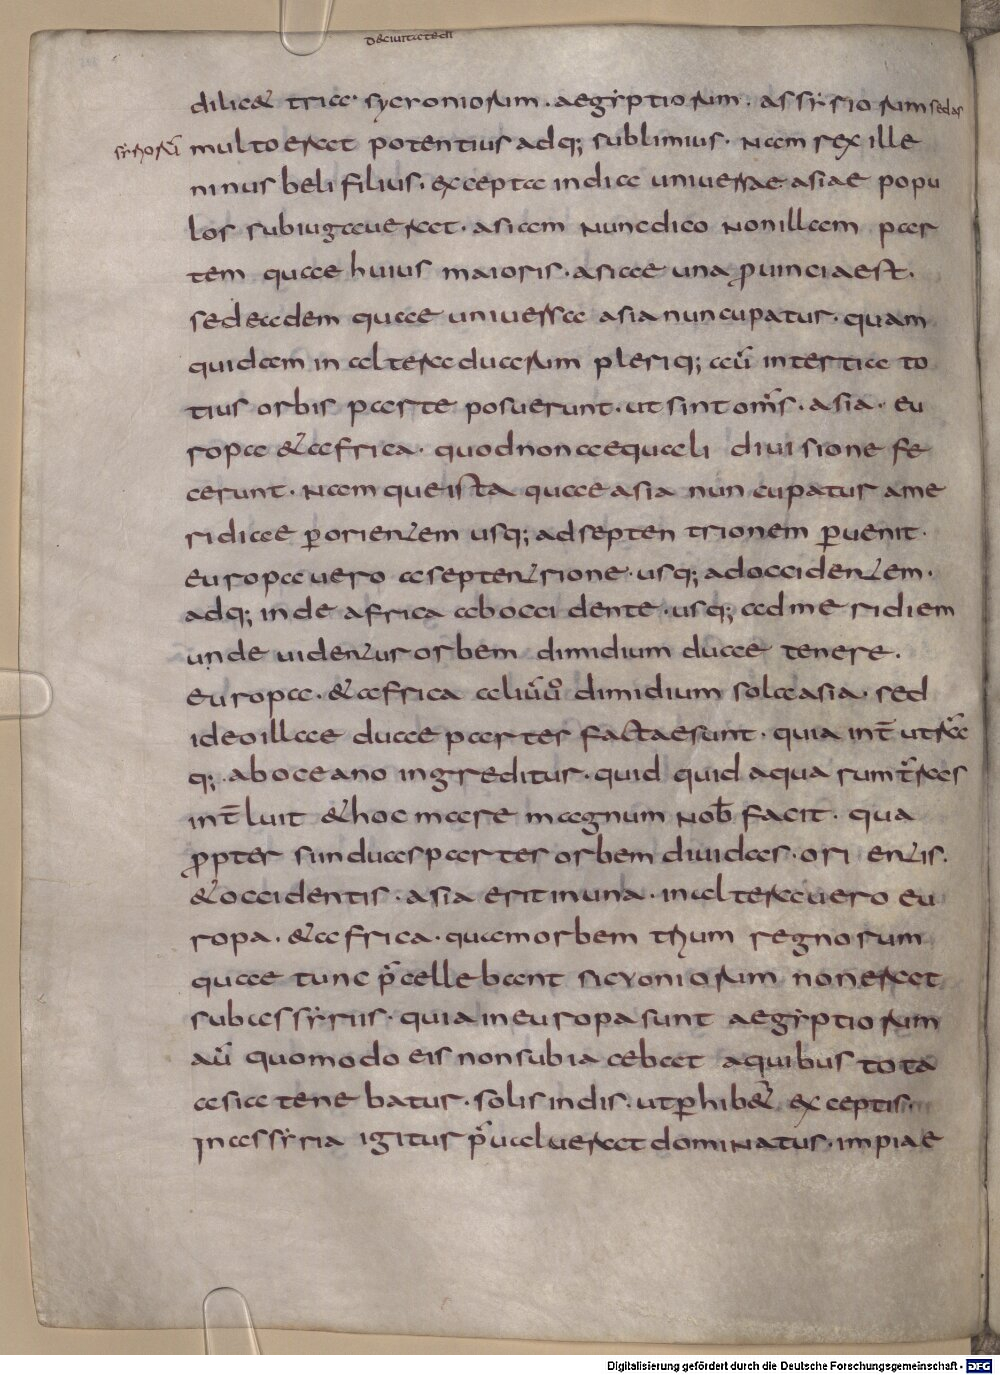 De ciuitate dei
dilic& tria. sycroniorum. aegyptiorum. assyriorum sed as
syriorū multo erat potentius adq; sublimius. Nam rex ille
ninus beli filius. excepta india uniuersae asiae popu
los subiugauerat. asiam nunc dico non illam par
tem quae huius maioris. asiae una ꝓuincia est.
sed eadem quae uniuersa asia nuncupatur. quam
quidam in altera duarum pleriq; aū in tertia to
tius orbis parte posuerunt. ut sint om̄s. asia. eu
ropa & africa. quod non aequali diuisione fe
cerunt. Nam que ista quae asia nuncupatur ame
ridiae ꝑ orientem usq; ad septentrionem ꝑuenit.
europa uero a septentrione. usq; ad occidentem.
adq; inde africa ab occidente. usq; ad meridiem
unde uidentur orbem dimidium duae tenere.
europa. & africa aliūū dimidium sola asia. sed
ideo illae duae partes factae sunt. quia int̄ utrāa
q; ab oceano ingreditur. quid quid aquarum t̄ras
int̄luit & hoc mare magnum nob̄ facit. qua
ꝓpter sun duas partes orbem diuidas. orientis.
& occidentis. asia erit in una. in altera uero eu
ropa. & africa. quam orbem trium regnorum
quae tunc p̄cellebant sicyoniorum non erat
sub assyriis. quia in europa sunt aegyptiorum
aū quomodo eis non subiacebat aquibus tota
asia tenebatur. solis indis. ut ꝑhib&̄ exceptis.
In assyria igitur p̄ualuerat dominatus. impiae
Digitalisierung gefördert durch die Deutsche Forschungsgemeinschaft - DFG